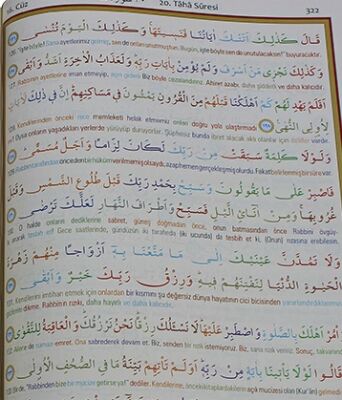 Cüz 20. Tâhâ Sûresi 322
قَالَ كَذٰلِكَ اَتَتْكَ اٰيَاتُنَا فَنَسِيتَهَا وَكَذٰلِكَ الْيَوْمَ تُنْسٰى
126. "İşte böyle! Sana ayetlerimiz gelmiş, sen de onları unutmuştun. Bugün, işte böyle sen de unutulacaksın!" buyuracaktır.
وَكَذٰلِكَ نَجْزِي مَنْ اَسْرَفَ وَلَمْ يُؤْمِنْ بِاٰيَاتِ رَبِّهِ وَلَعَذَابُ الْاٰخِرَةِ اَشَدُّ وَاَبْقٰى
127. Rabbinin ayetlerine iman etmeyip, aşırı gideni Biz böyle cezalandırırız. Ahiret azabı, daha şiddetli ve daha kalıcıdır.
اَفَلَمْ يَهْدِ لَهُمْ كَمْ اَهْلَكْنَا قَبْلَهُمْ مِنَ الْقُرُونِ يَمْشُونَ فِي مَسَاكِنِهِمْ اِنَّ فِي ذٰلِكَ لَاٰيَاتٍ
لِاُولِي النُّهٰى 128. Kendilerinden önceki nice memleketi helak etmemiz onları doğru yola ulaştırmadı
mı? Oysa onların yaşadıkları yerlerde yürüyüp duruyorlar. Şüphesiz bunda ibret alacak aklı olanlar için deliller vardır.
وَلَوْلَا كَلِمَةٌ سَبَقَتْ مِنْ رَبِّكَ لَكَانَ لِزَامًا وَاَجَلٌ مُسَمًّى
129. Rabbin tarafından önceden bir hüküm verilmemiş olsaydı azap hemen gerçekleşmiş olurdu. Fakat belirlenmiş bir süre var.
فَاصْبِرْ عَلٰى مَا يَقُولُونَ وَسَبِّحْ بِحَمْدِ رَبِّكَ قَبْلَ طُلُوعِ الشَّمْسِ وَقَبْلَ
غُرُوبِهَا وَمِنْ اٰنَائِ الَّيْلِ فَسَبِّحْ وَاَطْرَافَ النَّهَارِ لَعَلَّكَ تَرْضٰى
130. O halde onların dediklerine sabret, güneş doğmadan önce, onun batmasından önce Rabbini övgüy-
le anarak tesbih et! Gece saatlerinde, gündüzün iki tarafında (iki ucunda) da tesbih et ki, (Onun) rızasına erebilesin.
وَلَا تَمُدَّنَّ عَيْنَيْكَ اِلٰى مَا مَتَّعْنَا بِهِ اَزْوَاجًا مِنْهُمْ زَهْرَةَ
الْحَيٰوةِ الدُّنْيَا لِنَفْتِنَهُمْ فِيهِ وَرِزْقُ رَبِّكَ خَيْرٌ وَاَبْقٰى
131. Kendilerini imtihan etmek için onlardan bir kısmını şu değersiz dünya hayatının cici bicisinden yararlandırdıklarımıza
gözlerini dikme. Rabbinin rızkı, daha hayırlı ve daha kalıcıdır.
وَاْمُرْ اَهْلَكَ بِالصَّلٰوةِ وَاصْطَبِرْ عَلَيْهَا لَا نَسْـَٔلُكَ رِزْقًا نَحْنُ نَرْزُقُكَ وَالْعَاقِبَةُ لِلتَّقْوٰى
132. Ailene de namazı emret. Ona sabrederek devam et. Biz, senden bir rızık istemiyoruz. Biz, sana rızık veririz. Sonuç, takvanındır.
وَقَالُوا لَوْلَا يَاْتِينَا بِاٰيَةٍ مِنْ رَبِّهِ اَوَلَمْ تَاْتِهِمْ بَيِّنَةُ مَا فِي الصُّحُفِ الْاُولٰى
133. Bir de, "Rabbinden bize bir mucize getirse ya!" dediler. Kendilerine, önceki kitaplardakilerin açık mucizesi olan (Kur'ân) gelmedi